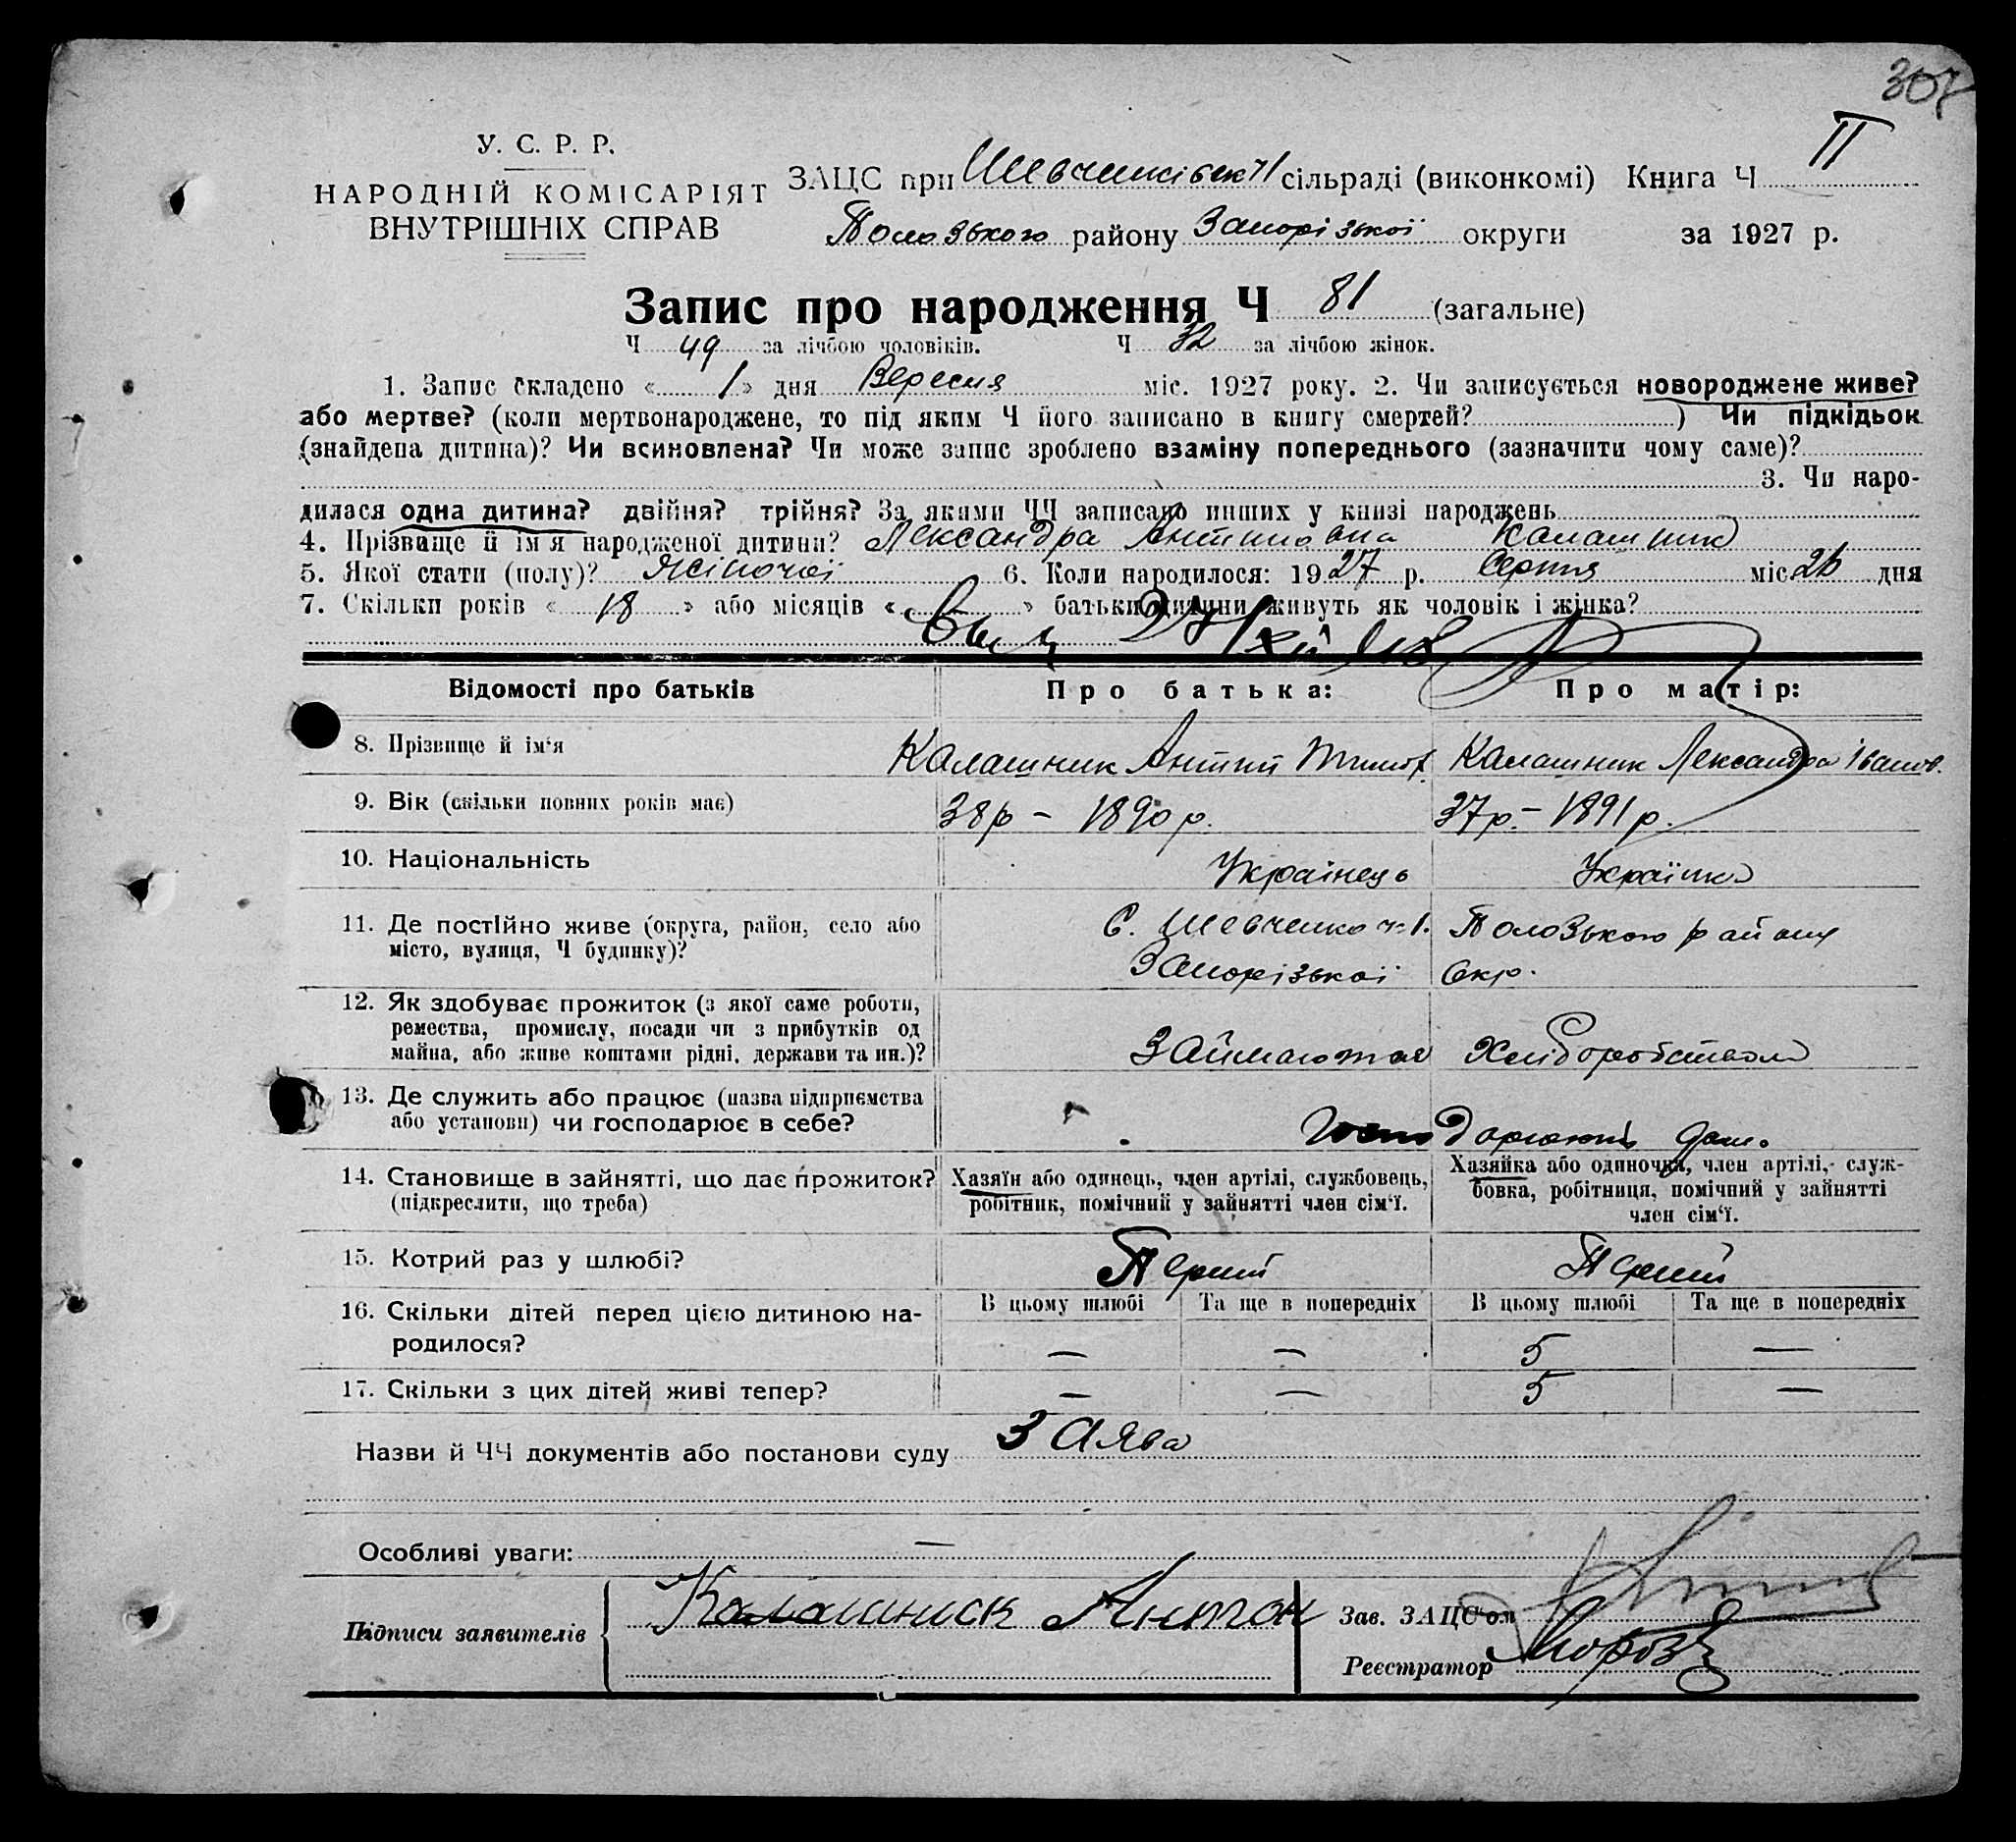 307
У. С. Р. Р.
НАРОДНІЙ КОМІСАРІЯТ
ВНУТРІШНІХ СПРАВ
ЗАЦС при Шевченківск ч1 сільраді (виконкомі) Книга Ч II
Пологського району Запорізької округи за 1927 р.
Запис про народження Ч 81 (загальне)
Ч 49 за лічбою чоловіків. Ч 32 за лічбою жінок.
1. Запис складено « 1 » дня Вересня міс. 1927 року. 2. Чи записується новороджене живе?
або мертве? (коли мертвонароджене, то під яким Ч його записано в книгу смертей? ) Чи підкідьок
(знайдена дитина)? Чи всиновлена? Чи може запис зроблено взаміну попереднього (зазначити чому саме)?
3. Чи наро-
дилася одна дитина? двійня? трійня? За якими ЧЧ записано инших у книзі народжень
4. Прізвище й ім'я народженої дитини? Лександра Антиповна Калашник
5. Якої стати (полу)? Жіночої 6. Коли народилося: 1927 р. Серпня міс. 26 дня
7. Скільки років « 18 » або місяців « » батьки дитини живуть як чоловік і жінка?
Відомості про батьків Про батька: Про матір:
8. Прізвище й ім'я Калашник Антип Тимоф. Калашник Лександра Іванов.
9. Вік (скільки повних років має) 38 р – 1890 р. 37 р. – 1891 р.
10. Національність Українець Українка
11. Де постійно живе (округа, район, село або С. Шевченко ч1. Пологського району
місто, вулиця, Ч будинку)? Запорізької Окр.
12. Як здобуває прожиток (з якої саме роботи,
ремества, промислу, посади чи з прибутків од
майна, або живе коштами рідні, держави та ин.)? Займаються Хліборобством
13. Де служить або працює (назва підприємства
або установи) чи господарює в себе? Господарюють дом.
14. Становище в зайнятті, що дає прожиток? Хазяїн або одинець, член артілі, службовець, Хазяйка або одиночка, член артілі, служ-
(підкреслити, що треба) робітник, помічний у зайнятті член сім'ї. бовка, робітниця, помічний у зайнятті
член сім'ї.
15. Котрий раз у шлюбі? Перший Перший
16. Скільки дітей перед цією дитиною на- В цьому шлюбі Та ще в попередніх В цьому шлюбі Та ще в попередніх
родилося? — — 5 —
17. Скільки з цих дітей живі тепер? — — 5 —
Назви й ЧЧ документів або постанови суду Заява
Особливі уваги: —
Підписи заявителів Калашник Антон Зав. ЗАЦС'ом
Реєстратор Мороз